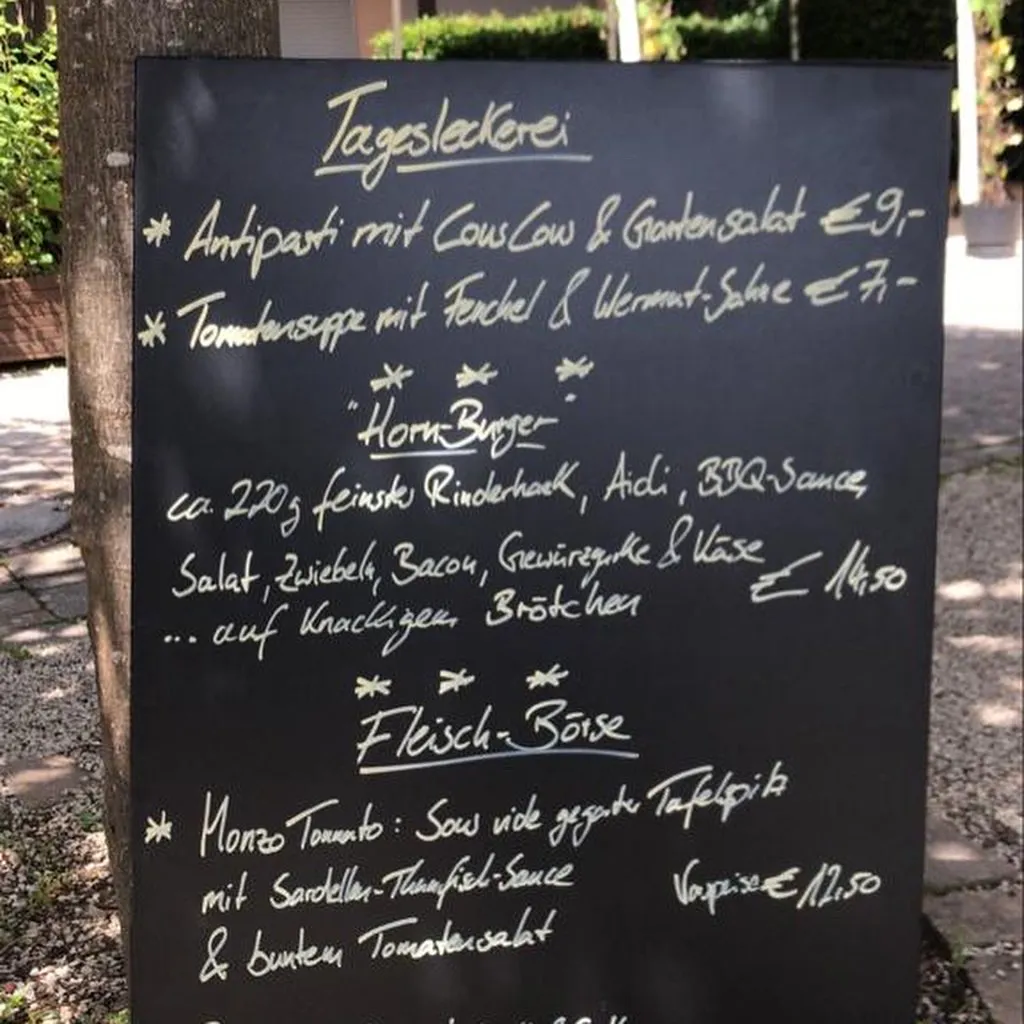 Tagesleckerei
* Antipasti mit CousCous & Gartensalat € 9,-
* Tomatensuppe mit Fenchel & Wermut-Sahne € 7,-
* * *
"Horn-Burger"
ca. 220g feinstes Rinderhack, Aioli, BBQ-Sauce,
Salat, Zwiebeln, Bacon, Gewürzgurke & Käse
€ 14,50
... auf knackigem Brötchen
* * *
Fleisch-Börse
* Monzo Tonnato: Sous vide gegarter Tafelspitz
mit Sardellen-Thunfisch-Sauce
Vorspeise € 12,50
& buntem Tomatensalat